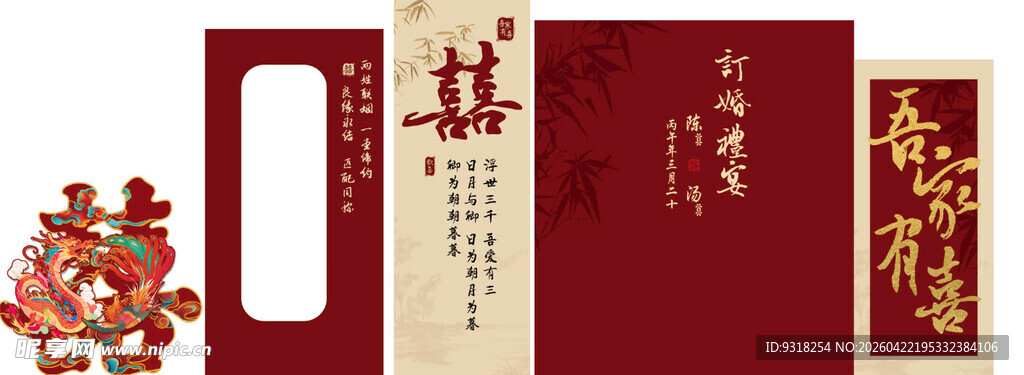 两姓联姻 一堂缔约
良缘永结 匹配同称
囍
吾家有喜
囍
浮世三千 吾爱有三
日月与卿 日为朝月为暮
卿为朝朝暮暮
訂婚禮宴
陈XX 囍 汤XX
丙午年三月二十
吾家有喜
昵享网 www.nipic.cn
ID:9318254 NO:20260422195332384106